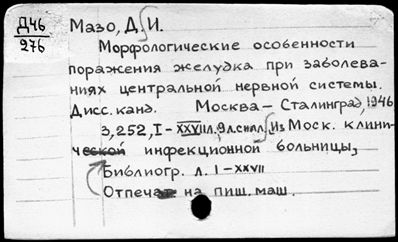 Д46
276
Мазо, Д. И.
Морфологические особенности
поражения желудка при заболева-
ниях центральной нервной системы.
Дисс. канд. Москва – Сталинград, 1946
3, 252, I – XXVII л. 9 л. с илл. Из Моск. клини-
ческой инфекционной больницы,
Библиогр. л. I – XXVII
Отпечат на пиш. маш.